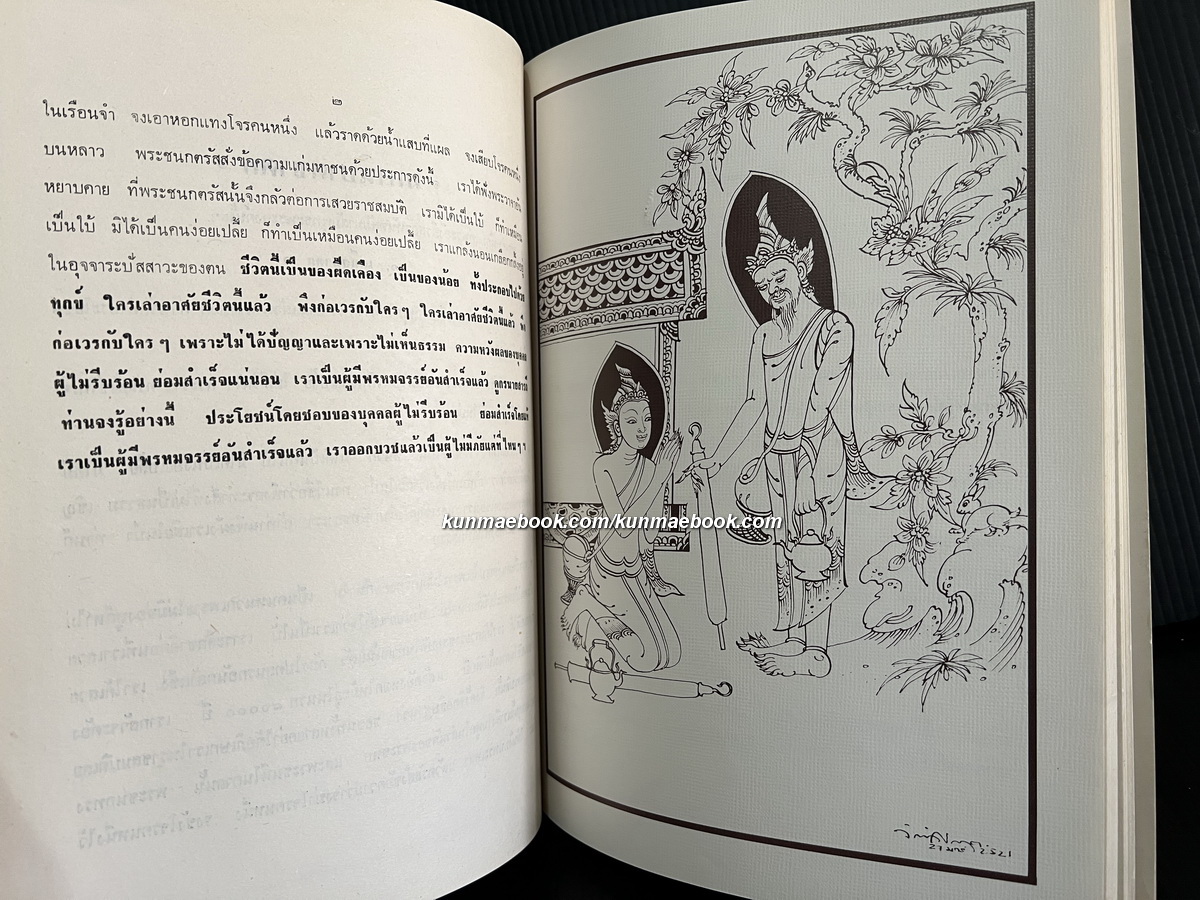 ๒
ในเรือนจำ จงเอาหอกแทงโจรคนหนึ่ง แล้วราดด้วยน้ำแสบที่แผล จงเสียบโจรคนหนึ่ง
บนหลาว พระชนกตรัสสั่งข้อความแก่มหาชนด้วยประการดังนี้ เราได้ฟังพระวาจาอัน
หยาบคาย ที่พระชนกตรัสนั้นจึงกลัวต่อการเสวยราชสมบัติ เรามิได้เป็นใบ้ ก็ทำเหมือน
เป็นใบ้ มิได้เป็นคนง่อยเปลี้ย ก็ทำเป็นเหมือนคนง่อยเปลี้ย เราแกล้งนอนเกลือกกลิ้งอยู่
ในอุจจาระปัสสาวะของตน ชีวิตนี้เป็นของฝืดเคือง เป็นของน้อย ทั้งประกอบไปด้วย
ทุกข์ ใครเล่าอาศัยชีวิตนี้แล้ว พึงก่อเวรกับใครๆ ใครเล่าอาศัยชีวิตนี้แล้ว พึง
ก่อเวรกับใคร ๆ เพราะไม่ได้ปัญญาและเพราะไม่เห็นธรรม ความหวังผลของบุคคล
ผู้ไม่รีบร้อน ย่อมสำเร็จแน่นอน เราเป็นผู้มีพรหมจรรย์อันสำเร็จแล้ว ดูกรนายสารถี
ท่านจงรู้อย่างนี้ ประโยชน์โดยชอบของบุคคลผู้ไม่รีบร้อน ย่อมสำเร็จโดยแท้
เราเป็นผู้มีพรหมจรรย์อันสำเร็จแล้ว เราออกบวชแล้วเป็นผู้ไม่มีภัยแต่ที่ไหนๆ ฯ
kunmaebook.com/kunmaebook.com